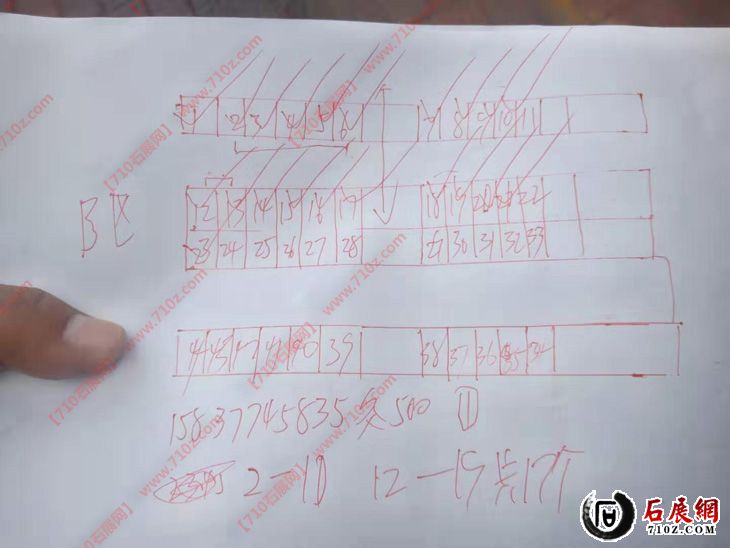 1 2 3 4 5 6 7 8 9 10 11
12 13 14 15 16 17 18 19 20 21 22
B区
23 24 25 26 27 28 29 30 31 32 33
44 43 42 41 40 39 38 37 36 35 34
15837745835 500 11
2—10 12—19共17个
【710石展网】www.710z.com
石展網
710Z.COM